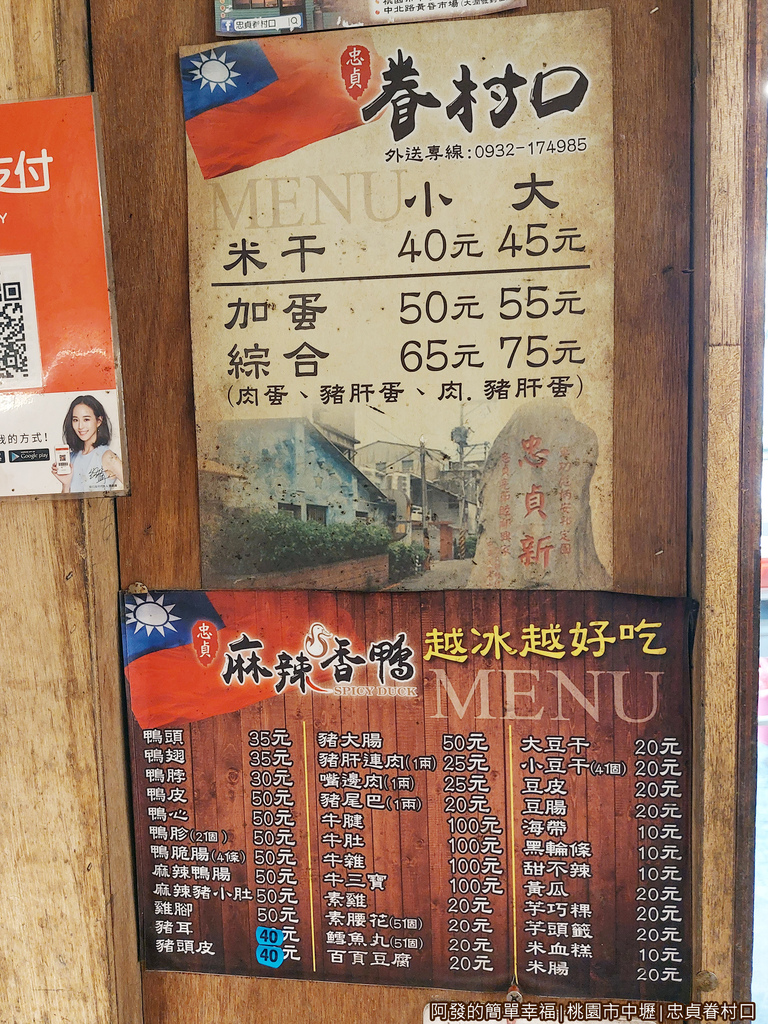 忠貞眷村口
中北路黃昏市場
支付
Y
我的方式!
Google play
忠貞
眷村口
外送專線:0932-174985
MENU
小 大
米干 40元 45元
加蛋 50元 55元
綜合 65元 75元
(肉蛋、豬肝蛋、肉.豬肝蛋)
忠貞新
忠貞
麻辣香鴨
SPICY DUCK
越冰越好吃
MENU
鴨頭 35元
鴨翅 35元
鴨脖 30元
鴨皮 50元
鴨心 50元
鴨胗(21個) 50元
鴨脆腸(4條) 50元
麻辣鴨腸 50元
麻辣豬小肚 50元
雞腳 50元
豬耳 40元
豬頭皮 40元
豬大腸 50元
豬肝連肉(1兩) 25元
嘴邊肉(1兩) 25元
豬尾巴(1兩) 20元
牛腱 100元
牛肚 100元
牛雜 100元
牛三寶 100元
素雞 20元
素腰花(51個) 20元
鱈魚丸(51個) 20元
百頁豆腐 20元
大豆干 20元
小豆干(41個) 20元
豆皮 20元
豆腸 20元
海帶 10元
黑輪條 10元
甜不辣 10元
黃瓜 20元
芋巧粿 20元
芋頭籤 20元
米血糕 10元
米腸 20元
阿發的簡單幸福|桃園市中壢|忠貞眷村口